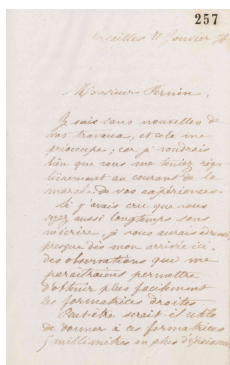 257
Versailles 21 Janvier
Monsieur Pernin,
Je suis sans nouvelles de
vos travaux, et cela me
préoccupe; car je voudrais
bien que vous me teniez régu-
lièrement au courant de la
marche de vos expériences.
Si j'avais cru que vous
fussiez aussi longtemps sans
m'écrire, je vous aurais
presque dès mon arrivée ici,
des observations que me
paraîtraient permettre
d'obtenir plus facilement
les formatrices droites.
Peut-être serait-il utile
de donner à ces formatrices
5 millimètres en plus d'épaisseur